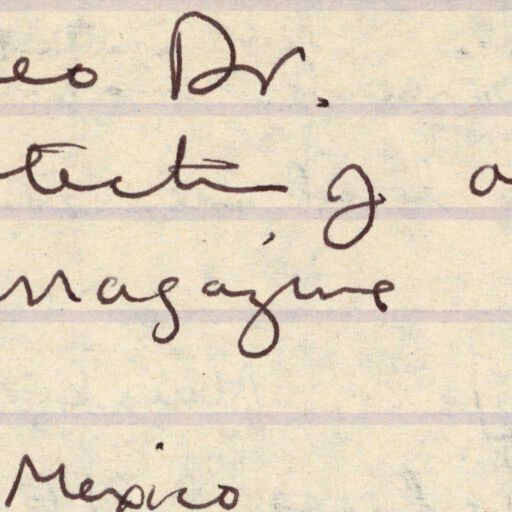 eo Dr.
tection g a
Magazine
Mexico